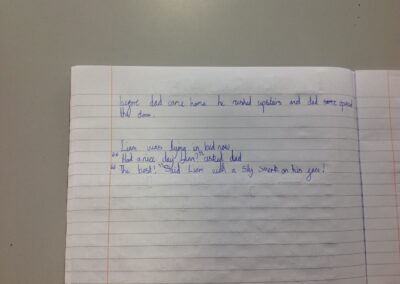 before dad came home he rushed upstairs and dad some opened
the door.
Liam was lying in bed now.
"Had a nice day Liam?" asked dad
"The best!" Said Liam with a sly smirk on his face!